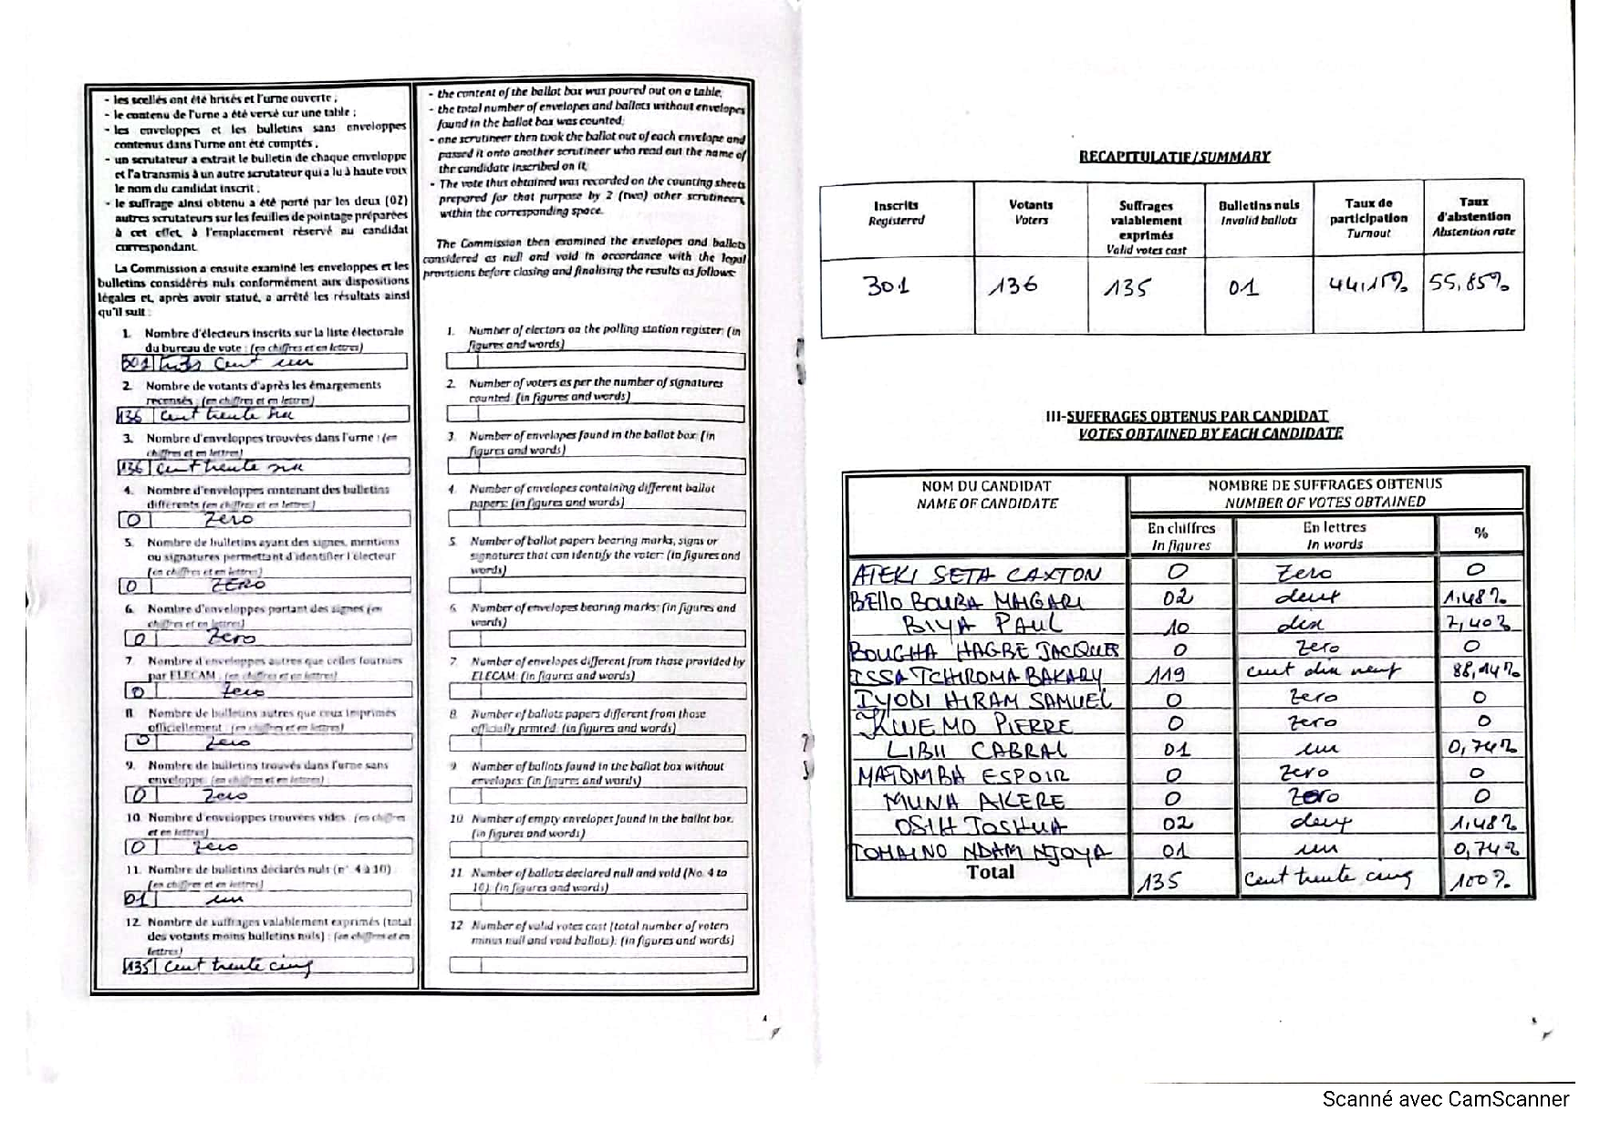 - les scellés ont été brisés et l'urne ouverte ;
- le contenu de l'urne a été versé sur une table ;
- les enveloppes et les bulletins sans enveloppes
contenus dans l'urne ont été comptés ;
- un scrutateur a extrait le bulletin de chaque enveloppe
et l'a transmis à un autre scrutateur qui a lu à haute voix
le nom du candidat inscrit ;
- le suffrage ainsi obtenu a été porté par les deux (02)
autres scrutateurs sur les feuilles de pointage préparées
à cet effet, à l'emplacement réservé au candidat
correspondant.
La Commission a ensuite examiné les enveloppes et les
bulletins considérés nuls conformément aux dispositions
légales et, après avoir statué, a arrêté les résultats ainsi
qu'il suit :
1. Nombre d'électeurs inscrits sur la liste électorale
du bureau de vote : (en chiffres et en lettres)
301 trois cent un
2. Nombre de votants d'après les émargements
recensés : (en chiffres et en lettres)
136 cent trente six
3. Nombre d'enveloppes trouvées dans l'urne : (en
chiffres et en lettres)
136 cent trente six
4. Nombre d'enveloppes contenant des bulletins
différents (en chiffres et en lettres)
0 Zero
5. Nombre de bulletins ayant des signes, mentions
ou signatures permettant d'identifier l'électeur
(en chiffres et en lettres)
0 ZERO
6. Nombre d'enveloppes portant des signes (en
chiffres et en lettres)
0 Zero
7. Nombre d'enveloppes autres que celles fournies
par ELECAM : (en chiffres et en lettres)
0 Zero
8. Nombre de bulletins autres que ceux imprimés
officiellement : (en chiffres et en lettres)
0 Zero
9. Nombre de bulletins trouvés dans l'urne sans
enveloppe (en chiffres et en lettres)
0 Zero
10. Nombre d'enveloppes trouvées vides (en chiffres
et en lettres)
0 Zero
11. Nombre de bulletins déclarés nuls (n° 4 à 10)
(en chiffres et en lettres)
01 un
12. Nombre de suffrages valablement exprimés (total
des votants moins bulletins nuls) : (en chiffres et en
lettres)
135 cent trente cinq
- the content of the ballot box was poured out on a table;
- the total number of envelopes and ballots without envelopes
found in the ballot box was counted;
- one scrutineer then took the ballot out of each envelope and
passed it onto another scrutineer who read out the name of
the candidate inscribed on it;
- The vote thus obtained was recorded on the counting sheets
prepared for that purpose by 2 (two) other scrutineers
within the corresponding space.
The Commission then examined the envelopes and ballots
considered as null and void in accordance with the legal
provisions before closing and finalising the results as follows:
1. Number of electors on the polling station register: (in
figures and words)
2. Number of voters as per the number of signatures
counted: (in figures and words)
3. Number of envelopes found in the ballot box: (in
figures and words)
4. Number of envelopes containing different ballot
papers: (in figures and words)
5. Number of ballot papers bearing marks, signs or
signatures that can identify the voter: (in figures and
words)
6. Number of envelopes bearing marks: (in figures and
words)
7. Number of envelopes different from those provided by
ELECAM: (in figures and words)
8. Number of ballots papers different from those
officially printed: (in figures and words)
9. Number of ballots found in the ballot box without
envelopes: (in figures and words)
10. Number of empty envelopes found in the ballot box.
(in figures and words)
11. Number of ballots declared null and void (No. 4 to
10): (in figures and words)
12. Number of valid votes cast (total number of voters
minus null and void ballots): (in figures and words)
4
RECAPITULATIF/SUMMARY
Inscrits Registered | Votants Voters | Suffrages valablement exprimés Valid votes cast | Bulletins nuls Invalid ballots | Taux de participation Turnout | Taux d'abstention Abstention rate
301 | 136 | 135 | 01 | 44,15% | 55,85%
III-SUFFRAGES OBTENUS PAR CANDIDAT
VOTES OBTAINED BY EACH CANDIDATE
NOM DU CANDIDAT NAME OF CANDIDATE | NOMBRE DE SUFFRAGES OBTENUS NUMBER OF VOTES OBTAINED
En chiffres In figures | En lettres In words | %
ATEKI SETA CAXTON | 0 | Zero | 0
BELLO BOUBA MAIGARI | 02 | deux | 1,48%
BIYA PAUL | 10 | dix | 7,40%
BOUGHA HAGBE JACQUES | 0 | Zero | 0
ISSA TCHIROMA BAKARY | 119 | cent dix neuf | 88,14%
IYODI HIRAM SAMUEL | 0 | Zero | 0
KWEMO PIERRE | 0 | Zero | 0
LIBII CABRAL | 01 | un | 0,74%
MATOMBA ESPOIR | 0 | Zero | 0
MUNA AKERE | 0 | Zero | 0
OSIH JOSHUA | 02 | deux | 1,48%
TOMAINO NDAM NJOYA | 01 | un | 0,74%
Total | 135 | Cent trente cinq | 100%
Scanné avec CamScanner